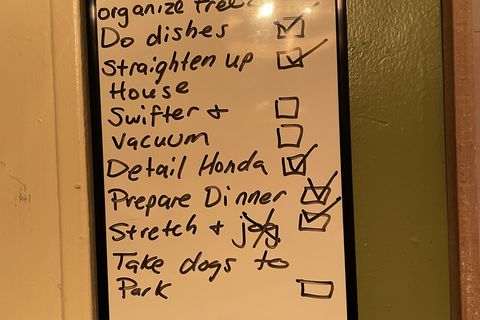 organize freezer
Do dishes
Straighten up
House
Swifter &
Vacuum
Detail Honda
Prepare Dinner
Stretch & jog
Take dogs to
Park